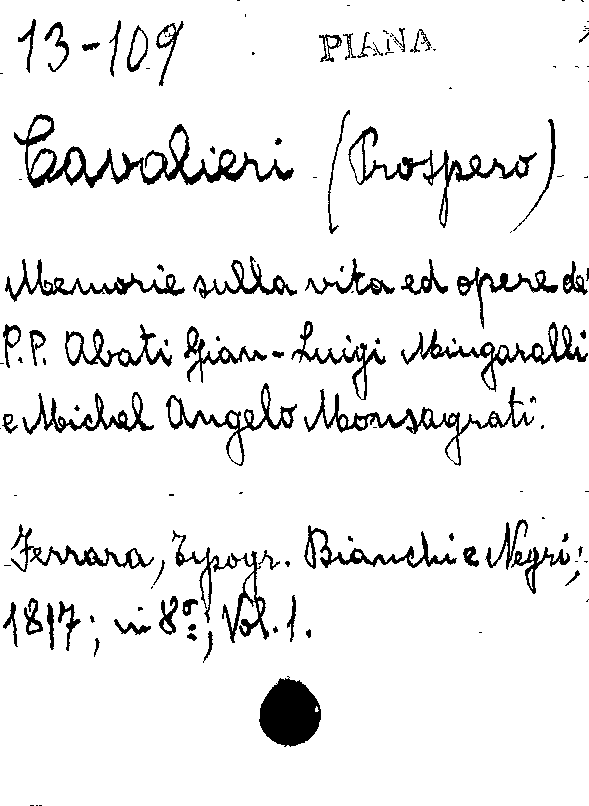 13-109 PIANA
Cavalieri (Prospero)
Memorie sulla vita ed opere de'
P.P. Abati Gian-Luigi Mingaralli
e Michel Angelo Monsagrati.
Ferrara, Typogr. Bianchi e Negri;
1817; in 8º; Vol. 1.